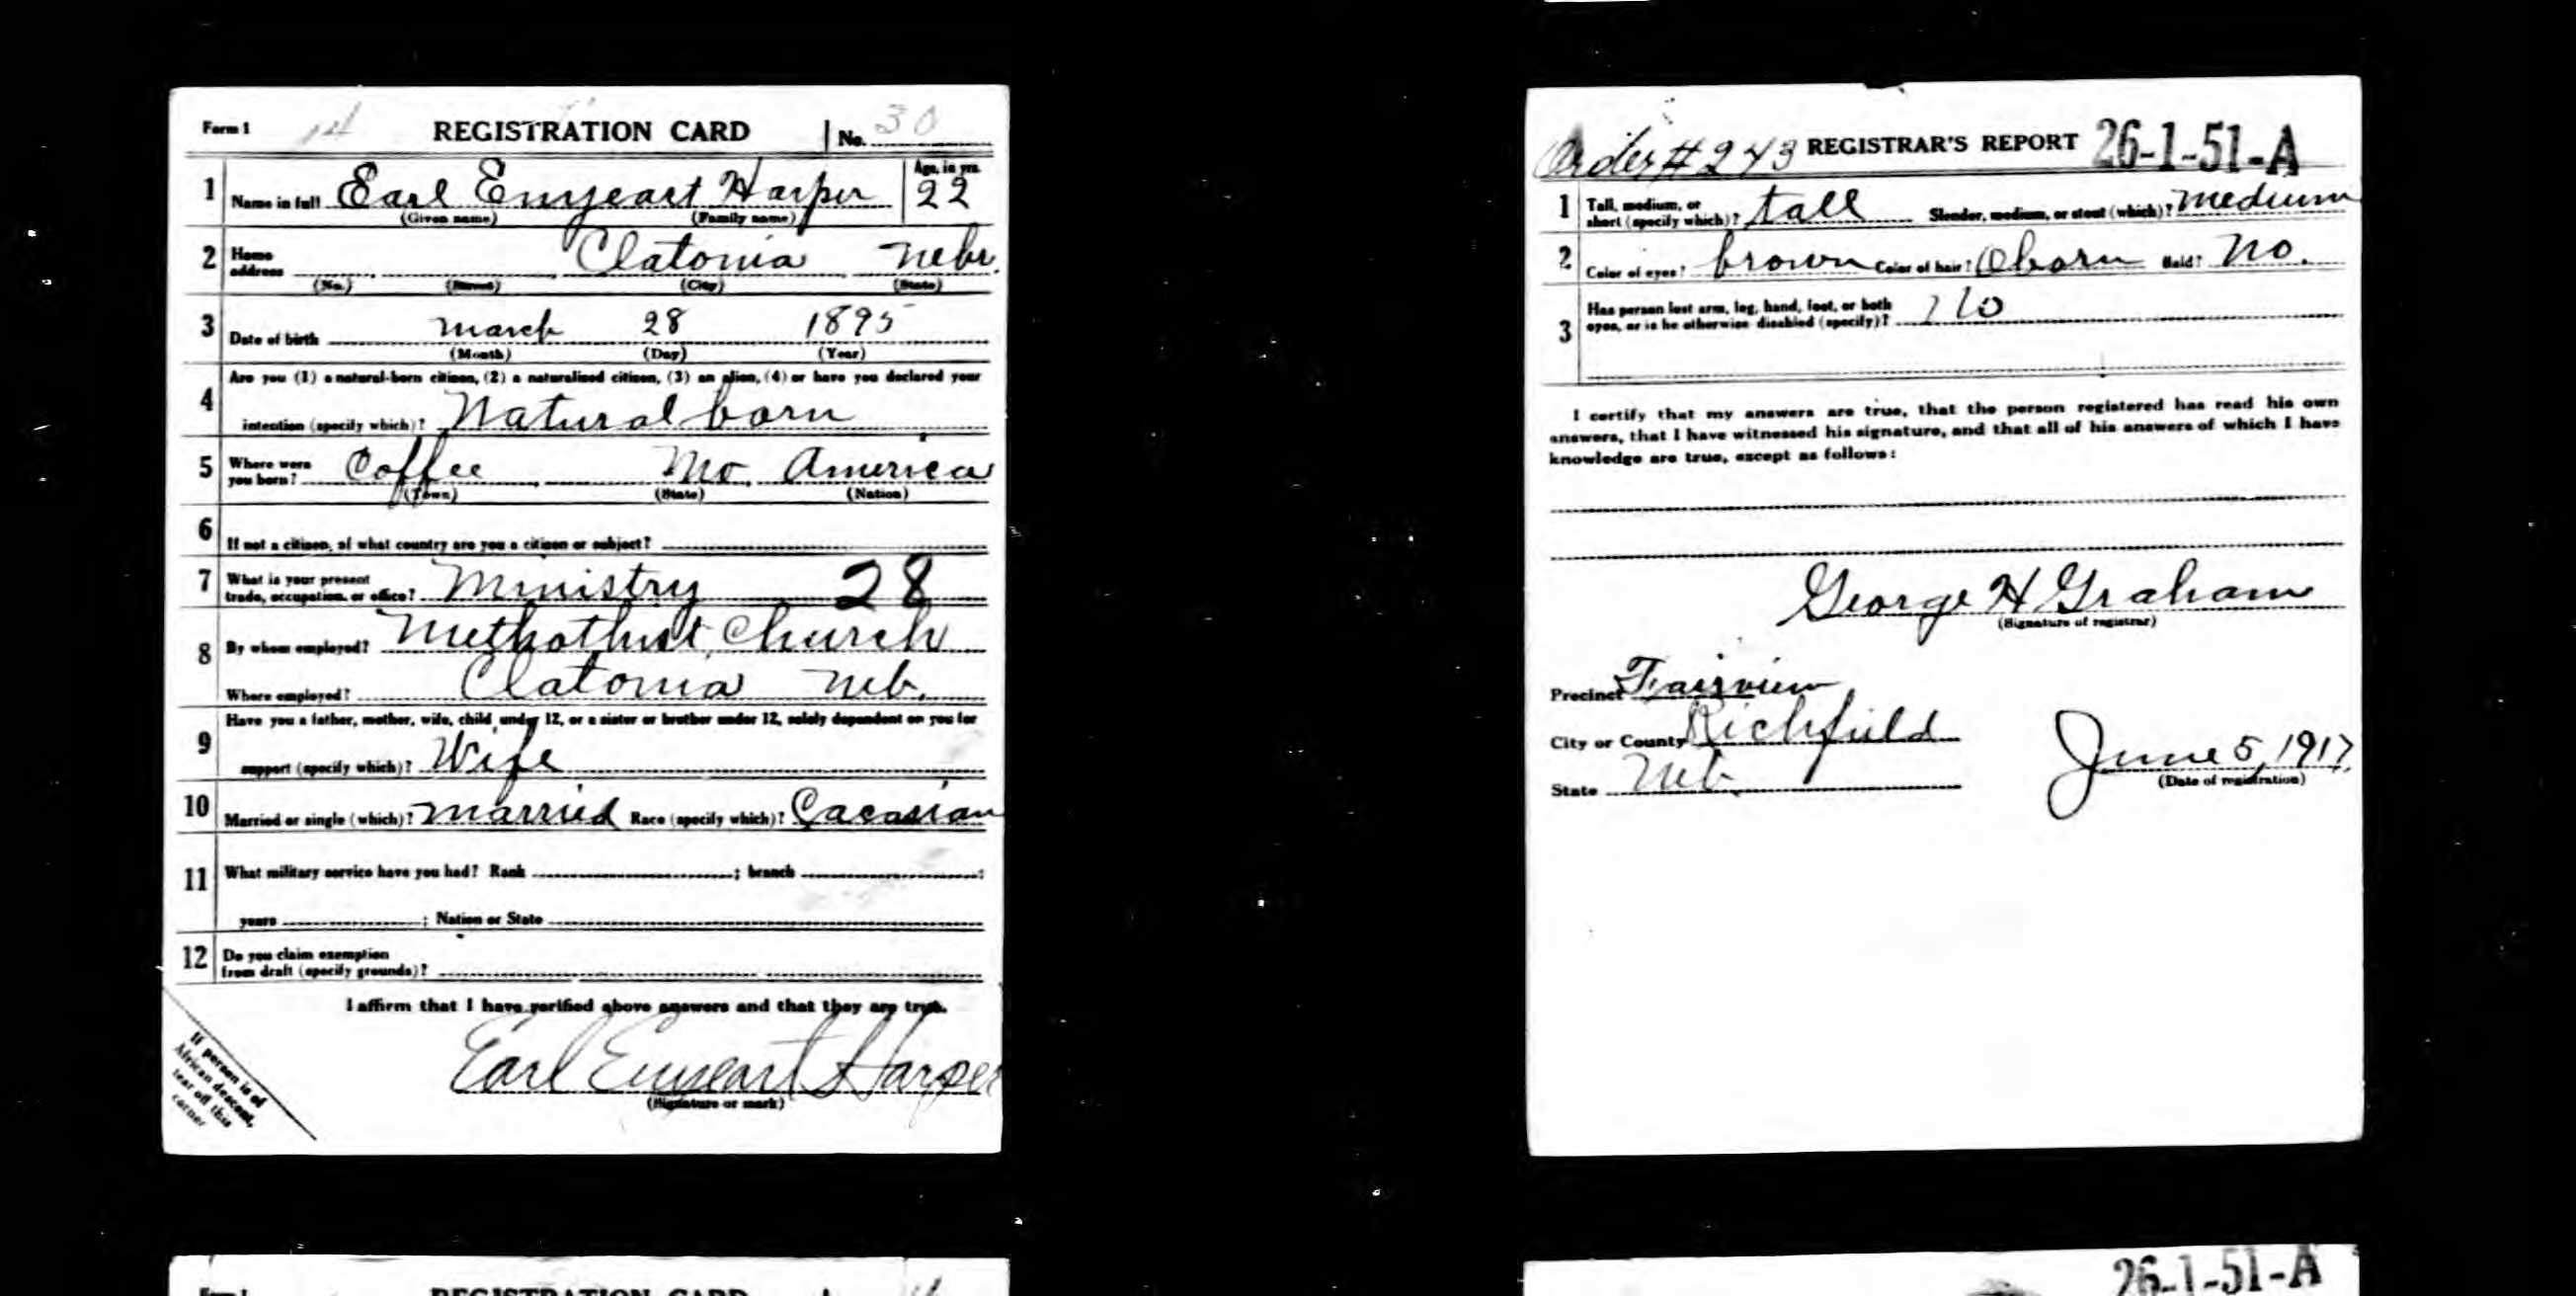 Form 1 14 REGISTRATION CARD No. 30
1 Name in full Earl Enyeart Harper Age, in yrs. 22
(Given name) (Family name)
2 Home address Clatonia Nebr.
(No.) (Street) (City) (State)
3 Date of birth March 28 1895
(Month) (Day) (Year)
4 Are you (1) a natural-born citizen, (2) a naturalized citizen, (3) an alien, (4) or have you declared your
intention (specify which)? Natural born
5 Where were you born? Coffee Mo. America
(Town) (State) (Nation)
6 If not a citizen, of what country are you a citizen or subject?
7 What is your present trade, occupation, or office? Ministry 28
8 By whom employed? Methothist Church
Where employed? Clatonia Neb.
9 Have you a father, mother, wife, child under 12, or a sister or brother under 12, solely dependent on you for
support (specify which)? Wife
10 Married or single (which)? Married Race (specify which)? Cacasian
11 What military service have you had? Rank ; branch ;
years ; Nation or State
12 Do you claim exemption
from draft (specify grounds)?
I affirm that I have verified above answers and that they are true.
Earl Enyeart Harper
(Signature or mark)
If person is of
African descent,
tear off this
corner
Order # 243 REGISTRAR'S REPORT 26-1-51-A
1 Tall, medium, or short (specify which)? tall Slender, medium, or stout (which)? Medium
2 Color of eyes? brown Color of hair? Oborn Bald? No.
3 Has person lost arm, leg, hand, foot, or both
eyes, or is he otherwise disabled (specify)? No
I certify that my answers are true, that the person registered has read his own
answers, that I have witnessed his signature, and that all of his answers of which I have
knowledge are true, except as follows:
George H Graham
(Signature of registrar)
Precinct Fairview
City or County Richfield
State Neb.
June 5, 1917
(Date of registration)
Form 1 REGISTRATION CARD
26-1-51-A